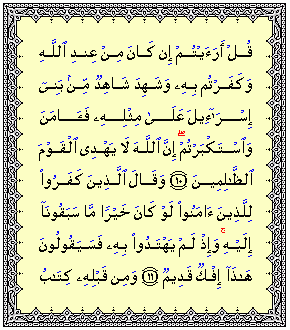 قُلْ أَرَءَيْتُمْ إِن كَانَ مِنْ عِندِ ٱللَّهِ
وَكَفَرْتُم بِهِۦ وَشَهِدَ شَاهِدٌ مِّنۢ بَنِىٓ
إِسْرَٰٓءِيلَ عَلَىٰ مِثْلِهِۦ فَـَٔامَنَ
وَٱسْتَكْبَرْتُمْ ۖ إِنَّ ٱللَّهَ لَا يَهْدِى ٱلْقَوْمَ
ٱلظَّـٰلِمِينَ ﴿١٠﴾ وَقَالَ ٱلَّذِينَ كَفَرُوا۟
لِلَّذِينَ ءَامَنُوا۟ لَوْ كَانَ خَيْرًا مَّا سَبَقُونَآ
إِلَيْهِ ۚ وَإِذْ لَمْ يَهْتَدُوا۟ بِهِۦ فَسَيَقُولُونَ
هَـٰذَآ إِفْكٌ قَدِيمٌ ﴿١١﴾ وَمِن قَبْلِهِۦ كِتَـٰبُ